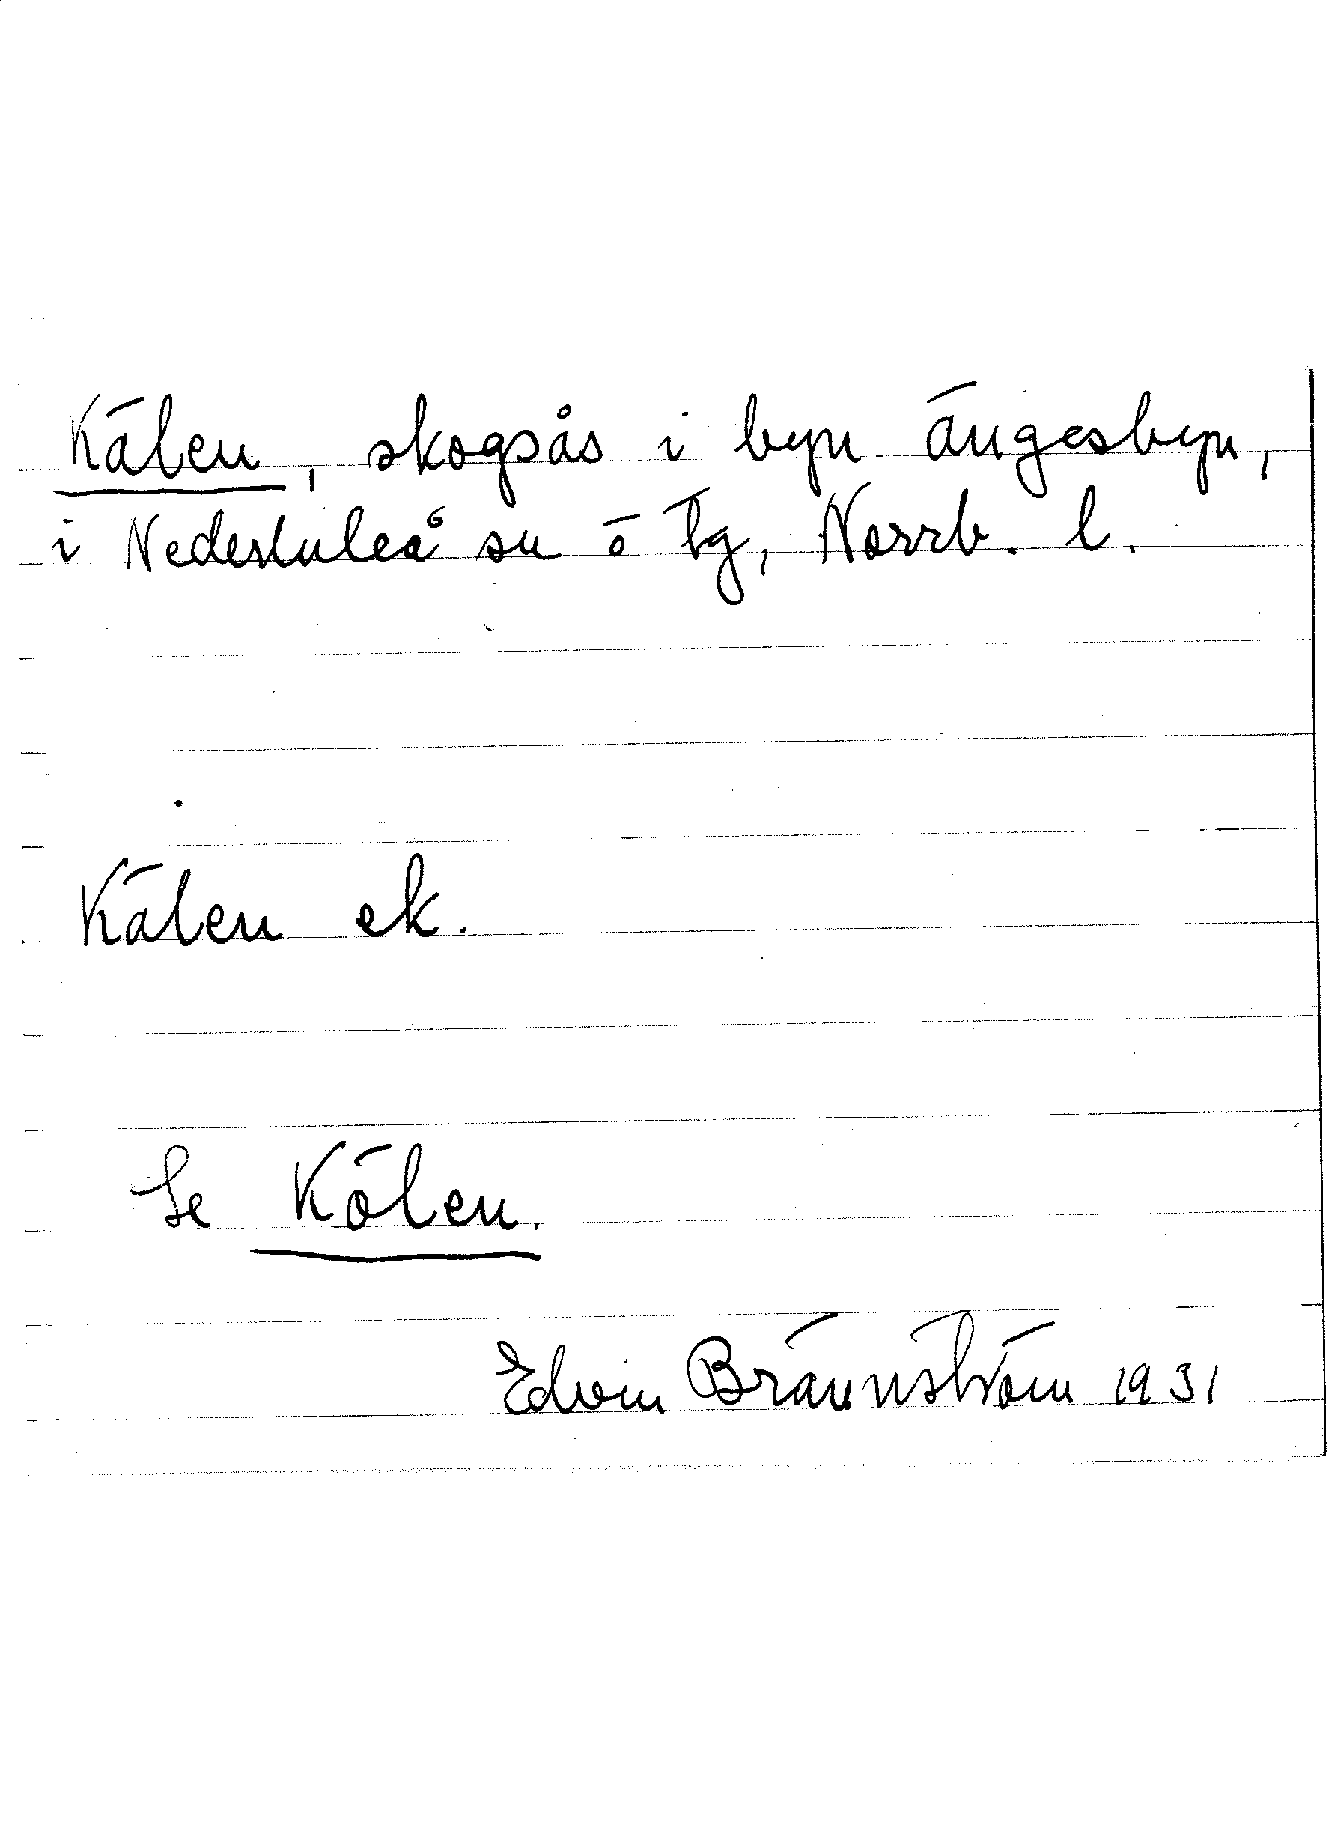 Kälen, skogsås i byn ängesbyn,
i Nederluleå sn ö tg, Norrb. l.
Kälen ek.
Se Kölen.
Edvin Brännström 1931